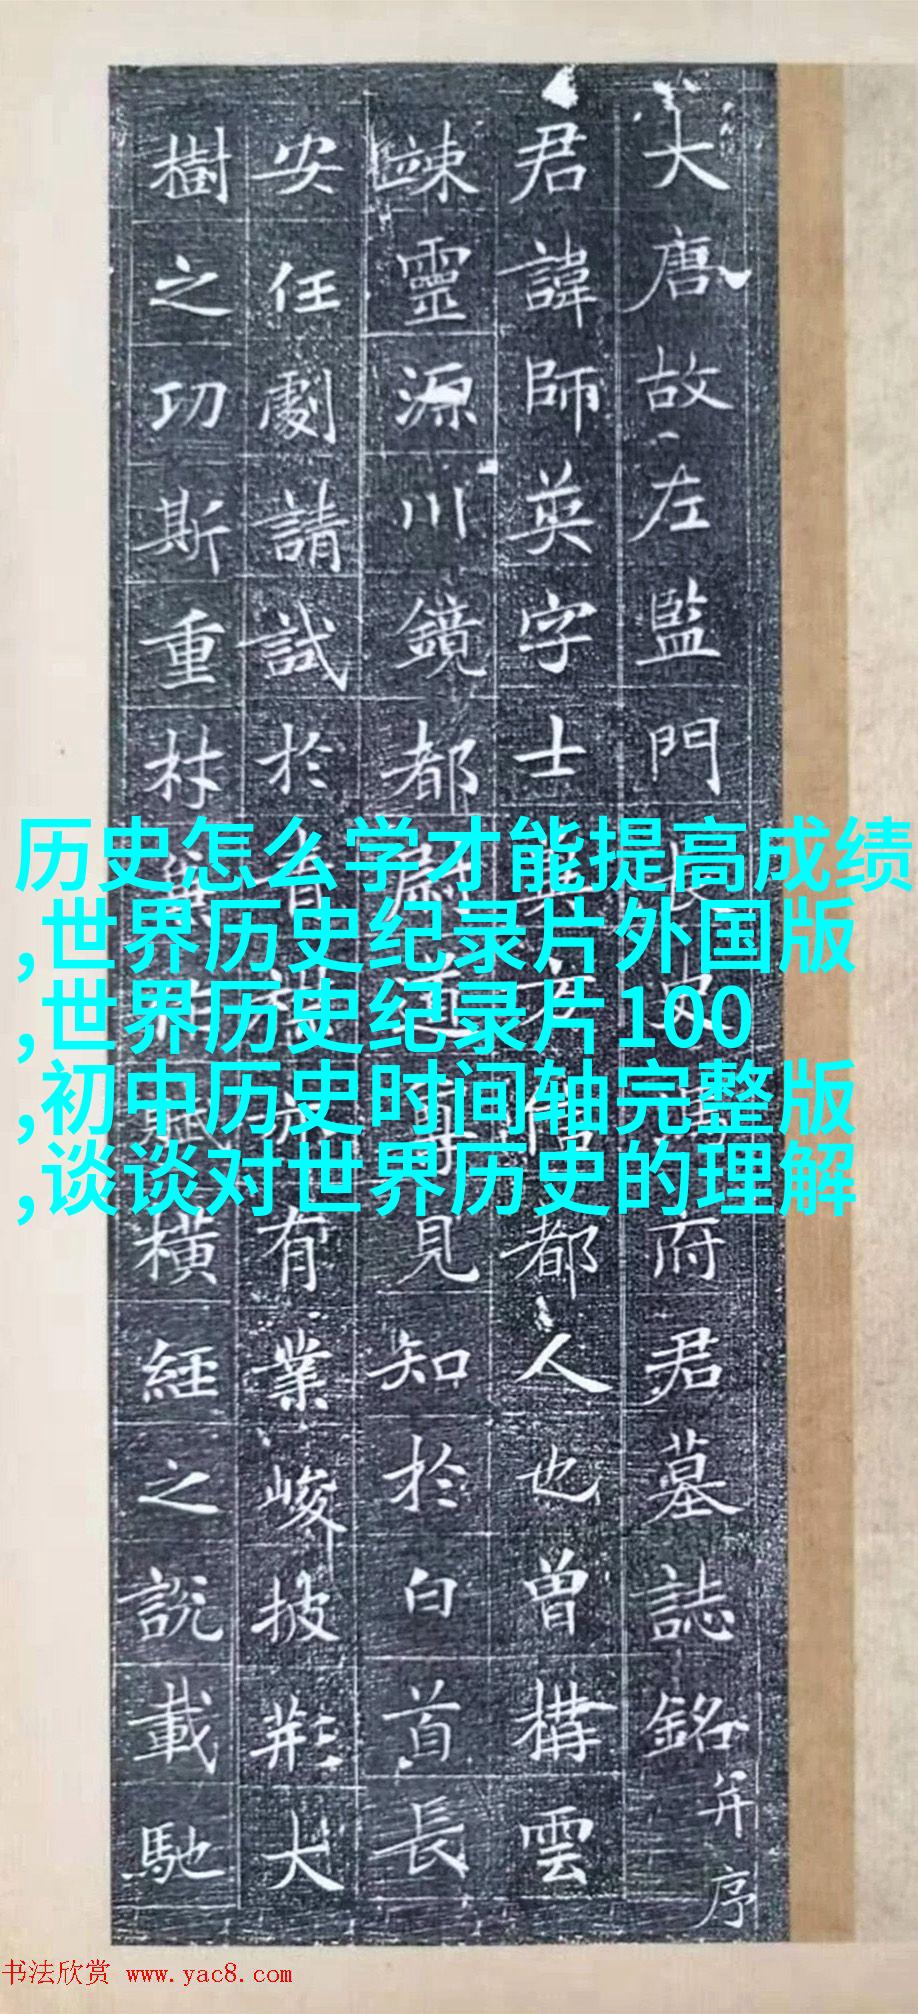 大唐故左監門長史府君墓誌銘并序
君諱師英字士都人也曾構雲
竦靈源川鏡都尉道尊見知於白首長
安任劇請試於有業峻披荊大
樹之功斯重林橫經之説載馳
历史怎么学才能提高成绩
,世界历史纪录片外国版
,世界历史纪录片100
,初中历史时间轴完整版
,谈谈对世界历史的理解
书法欣赏 www.yac8.com